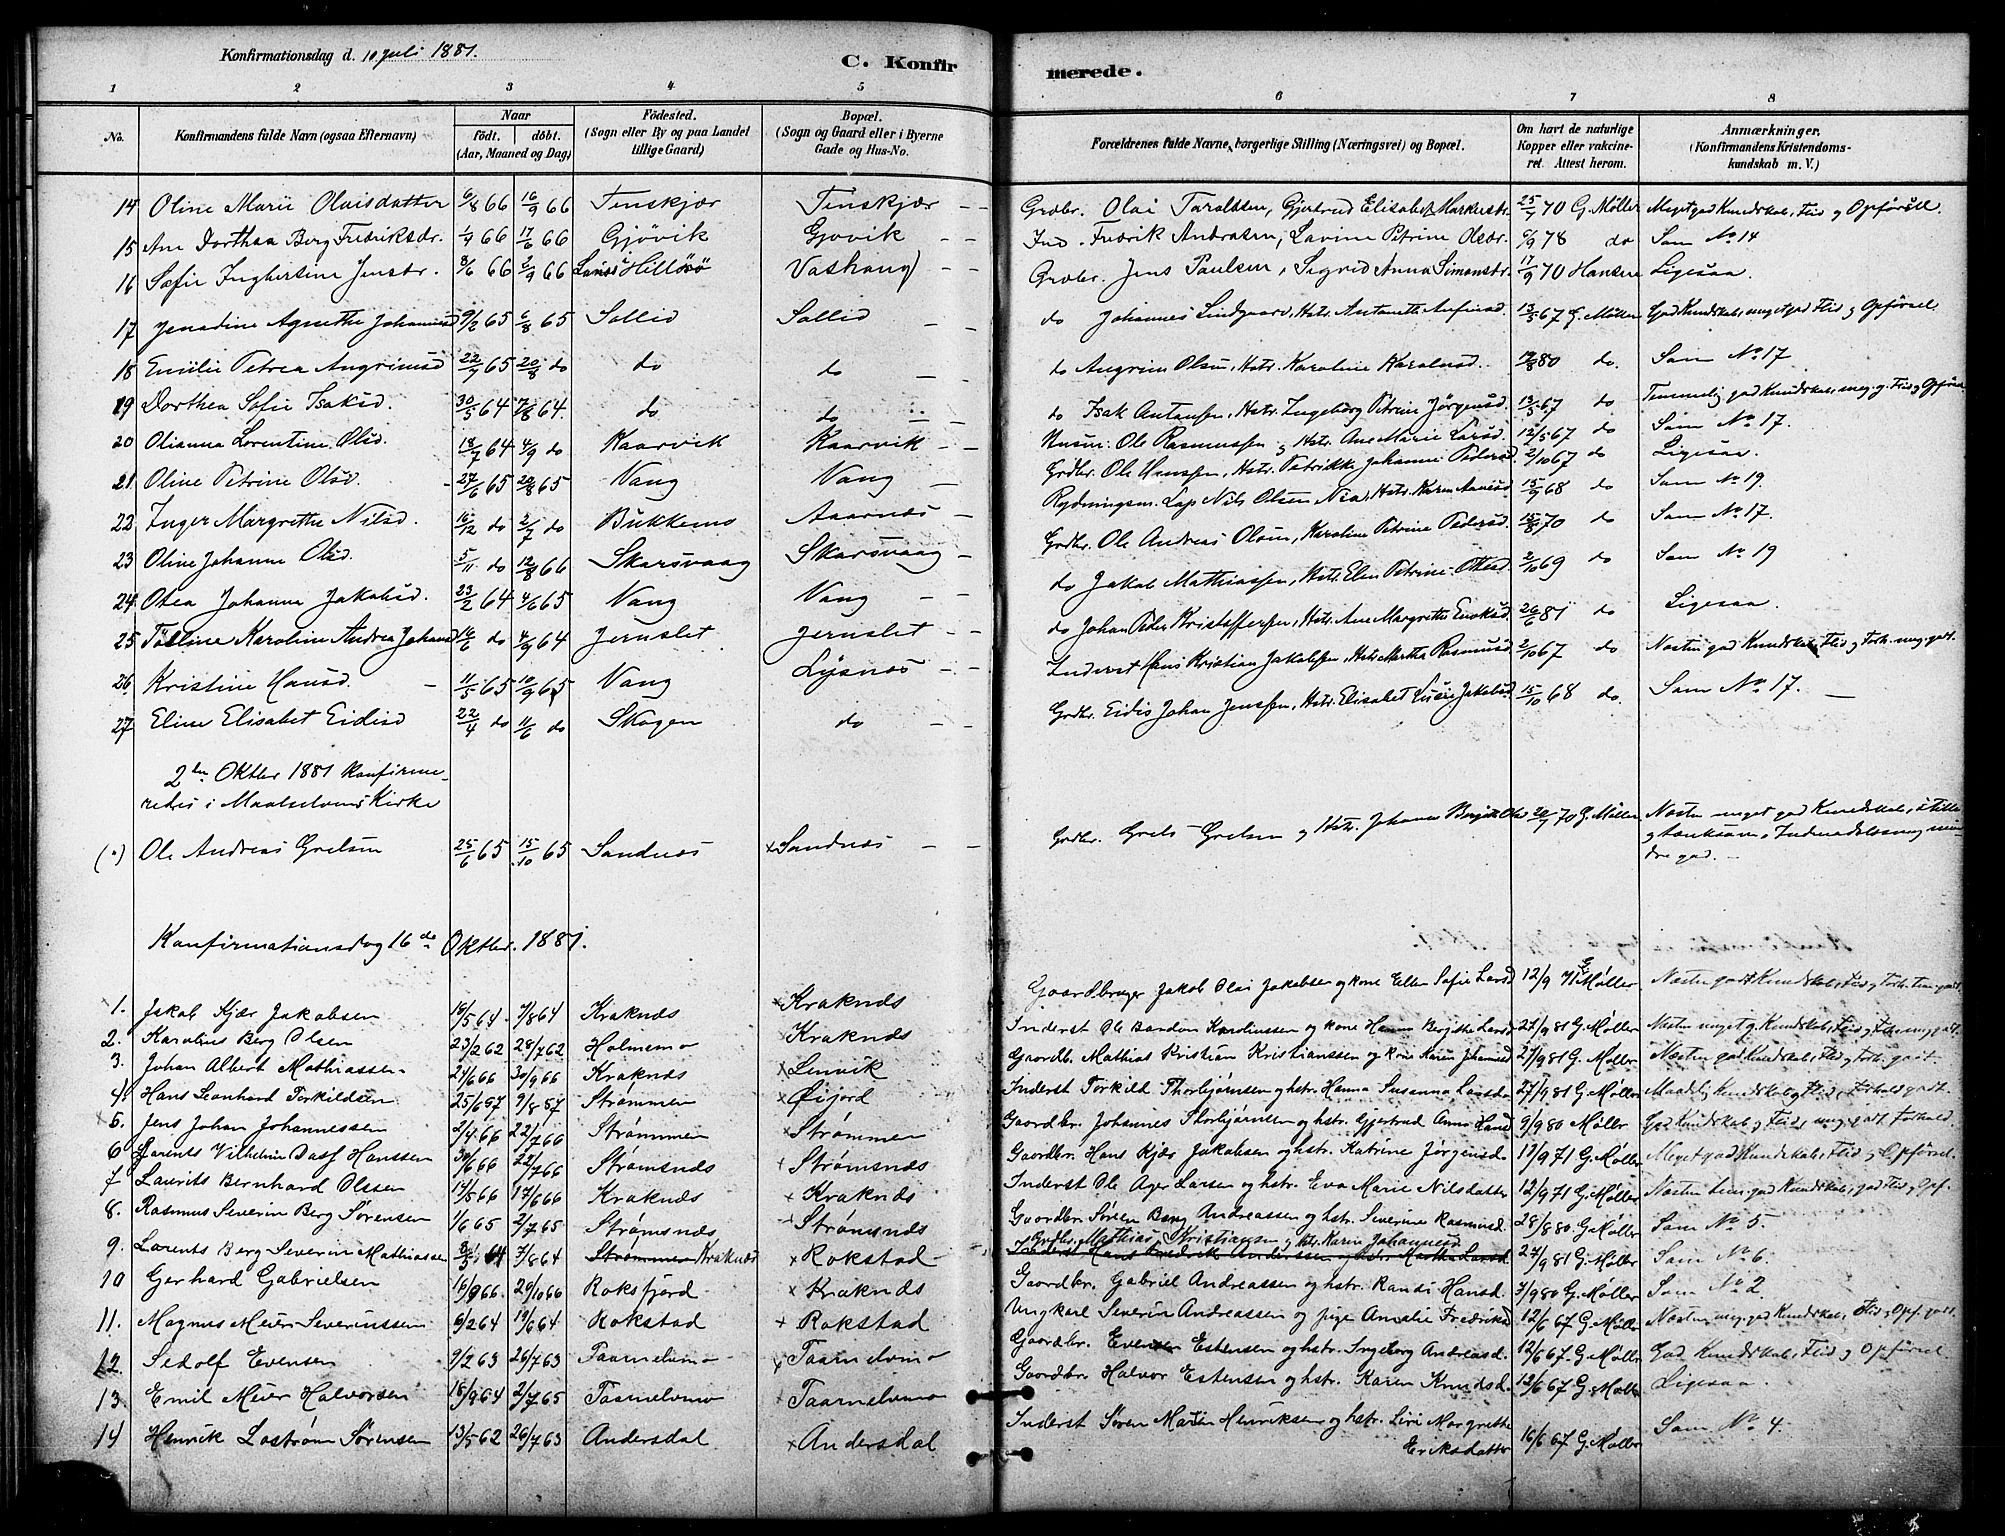 Konfirmationsdag d. 10 Juli 1881.
C. Konfirmerede.
1 2 3 4 5 6 7 8
No.
Konfirmandens fulde Navn (ogsaa Efternavn)
Naar
födt. döbt.
(Aar, Maaned og Dag)
Födested.
(Sogn eller By og paa Landet tillige Gaard)
Bopæl.
(Sogn og Gaard eller i Byerne Gade og Hus-No.
Forældrenes fulde Navne, borgerlige Stilling (Næringsvei) og Bopæl.
Om havt de naturlige Kopper eller vakcineret. Attest herom.
Anmærkninger.
(Konfirmandens Kristendomskundskab m. V.)
14 Oline Marie Olaisdatter 6/8 66 16/9 66 Tenskjær Tenskjær Grdbr. Olai Taraldsen, Gjertrud Elisabet Markusdr. 25/7 70 G. Møller Meget god Kundskab, Flid og Opførsel.
15 Ane Dorthea Berg Fredriksdr. 1/4 66 17/6 66 Gjövik Gjovik Ind. Fredrik Andreasen, Lavine Petrine Olsdr. 6/9 78 do Som No 14
16 Sofie Ingbertine Jensdr. 8/6 66 2/9 66 Hillesö Vashaug Grdbr. Jens Paulsen, Sigrid Anna Simonsdr. 17/9 70 Hansen Ligesaa.
17 Jenadine Agnethe Johannesd 9/2 65 6/8 65 Sollid Sollid do Johannes Lindgaard, Hstr. Antonette Anfinsd. 13/5 67 G. Møller God Kundskab, meget god Flid og Opførsel.
18 Emilie Petrea Angrimsd 22/7 65 20/8 do do do do Angrim Olsen, Hstr. Karoline Karolusd. 80 do. Som No 17
19 Dorthea Sofie Isaksd. 30/5 64 7/8 64. do do do Isak Antonsen, Hstr. Ingeborg Petrine Jörgensd. 13/5 67 do Temmelig god Kundskab, meg. g. Flid og Opförsel
20 Olianna Lorentine Olsd. 18/7 64 4/9 do Kaarvik Kaarvik Husm. Ole Rasmussen og Hstr. Ane Marie Larsd. 12/5 67 do Som No 17.
21 Oline Petrine Olsd. 27/6 65 20/8 65 Vang Vang Grdbr. Ole Hanssen, Hstr. Petrikke Johanne Pedersd. 2/10 67 do Ligesaa
22 Inger Margrethe Nilsd. 16/12 do 2/7 do Bukkemo Aarnes Rydningsm. Lap Nils Olsen Nia, Hstr. Karen Aanesd. 15/9 68 do Som No 19.
23 Oline Johanne Olsd. 5/11 do 12/8 66 Skarsvaag Skarsvaag Grdbr. Ole Andreas Olsen, Karoline Petrine Pedersd. 15/8 70 do Som No 17.
24 Otea Johanna Jakobsd. 23/2 64 4/6 65 Vang Vang do Jakob Mathiassen, Hstr. Elen Petrine Ottesd. 2/10 69 do Som No 19
25 Karoline Andrea Johansd 16/6 do 4/9 64 Jernslet Jernslet do Johan Peder Kristoffersen, Hstr. Ane Margrethe Eriksd. 26/6 81 do Ligesaa.
26 Kristine Hansd. 11/5 65 10/9 65 Vang Lysnæs Inderst Hans Kristian Jakobsen, Hstr. Martha Rasmusd. 2/10 67 do Næsten god Kundskab, Flid og Forh. meg. godt.
27 Eline Elisabet Eidisd 22/4 do 11/6 do Skogen do Grdbr. Eidis Johan Jenssen, Hstr. Elisabet Jakobsd. 15/10 68 do. Som No 17.
2den Oktber 1881 Konfirmeredes i Maalselvens Kirke
(1) Ole Andreas Grelsen 25/6 65 15/10 65 Sandnæs Sandnæs Grdbr. Grels Grelsen og Hstr. Johanne Bergitte Olsd 20/7 70 G. Møller Næsten meget god Kundskab, stille og tænksom, Indenadslæsning mindre god.
Konfirmationsdag 16de Oktber. 1881.
1. Jakob Kjær Jakobsen 16/5 64 7/8 64 Kraknæs Kraknæs Gaardbruger Jakob Olai Jakobsen og kone Ellen Sofie Larsd 12/9 71 G Møller Næsten godt Kundskab, Flid og Forh. tem. godt.
2. Karolius Berg Olsen 23/2 62 28/7 62 Holmemo Kraknæs Inderst Ole Bandon Karoliussen og kone Hanna Bergitte Larsd 27/9 81 G. Møller Næsten meget g. Kundskab, Flid og Forh. meg. godt.
3. Johan Albert Mathiassen 21/6 66 30/9 66 Kraknæs Lenvik Gaardbr. Mathias Kristian Kristianssen og kone Karen Johannesd 27/9 81 G. Møller Næsten god Kundskab, Flid og Forh. godt.
4. Hans Leonhard Torkildsen 25/6 67 9/8 67 Strømmen Øijord Inderst Torkild Thorbjørnsen og hstr. Hanna Susanna Larsd 27/9 81 G. Møller Maadelig Kundskab, Flid, Forhold godt.
5. Jens Johan Johannessen 2/4 66 22/7 66 Strømmen Strømmen Gaardbr. Johannes Thorbjørnsen og hstr. Gjertrud Anna Larsd 9/9 80 Møller God Kundskab, Flid, meg. godt Forhold.
6 Lorents Vilhelm Dass Hanssen 30/6 66 22/7 66 Strømsnæs Strømsnæs Gaardbr. Hans Kjær Jakobsen og hstr. Katrine Jørgensd. 12/9 71 G. Møller Meget god Kundskab, Flid og Opførsel.
7 Laurits Bernhard Olssen 14/5 66 17/6 66 Kraknæs Kraknæs Inderst Ole Ager Larsen og hstr. Eva Marie Nilsdatter 12/9 71 G. Møller Næsten tem. god Kundskab, god Flid og Opf.
8. Rasmus Severin Berg Sørensen 1/6 65 2/7 65 Strømsnæs Strømsnæs Gaardbr Søren Berg Andreassen og hstr. Severine Rasmusd. 28/8 80 G. Møller Som No 5.
9. Lorents Berg Severin Mathiassen 64 7/8 64 Strømmen Kraknæs Rokstad Grdbr. Mathias Kristiansen og hstr. Karen Johannesd
Inderst Hans Fredrik Anderssen og hstr. Marthe Larsd 27/9 81 G. Møller Som No 6.
10 Gerhard Gabrielsen 16/9 66 26/10 66 Roksfjord Kraknæs Gaardbr. Gabriel Andreassen og hstr. Randi Hansd. 3/9 80 G. Møller Som No 2.
11. Magnus Meier Severinssen 6/2 64 19/6 64 Rokstad Rokstad Ungkarl Severin Andreassen og pige Amalie Fredriksd 12/6 67 G. Møller Næsten meg. god Kundskab, Flid og Opf. godt.
12 Sedolf Evensen 9/2 63 26/7 63 Taarnelvmo Taarnelvmo Gaardbr. Even Estensen og hstr. Ingeborg Andreasd. 12/6 67 G. Møller God Kundskab, Flid og Opførsel
13. Emil Meier Halvorsen 18/9 64 2/7 65 Taarnelvmo Taarnelvmo Gaardbr. Halvor Estensen og hstr. Karen Knudsd. 12/6 67 G. Møller Ligesaa.
14 Henrik Lostrøm Sørensen 13/5 62 26/7 63 Andersdal Andersdal Inderst Søren Martin Henriksen og hstr. Liri Margrethe Eriksdatter 16/6 67 G. Møller Som No 4.